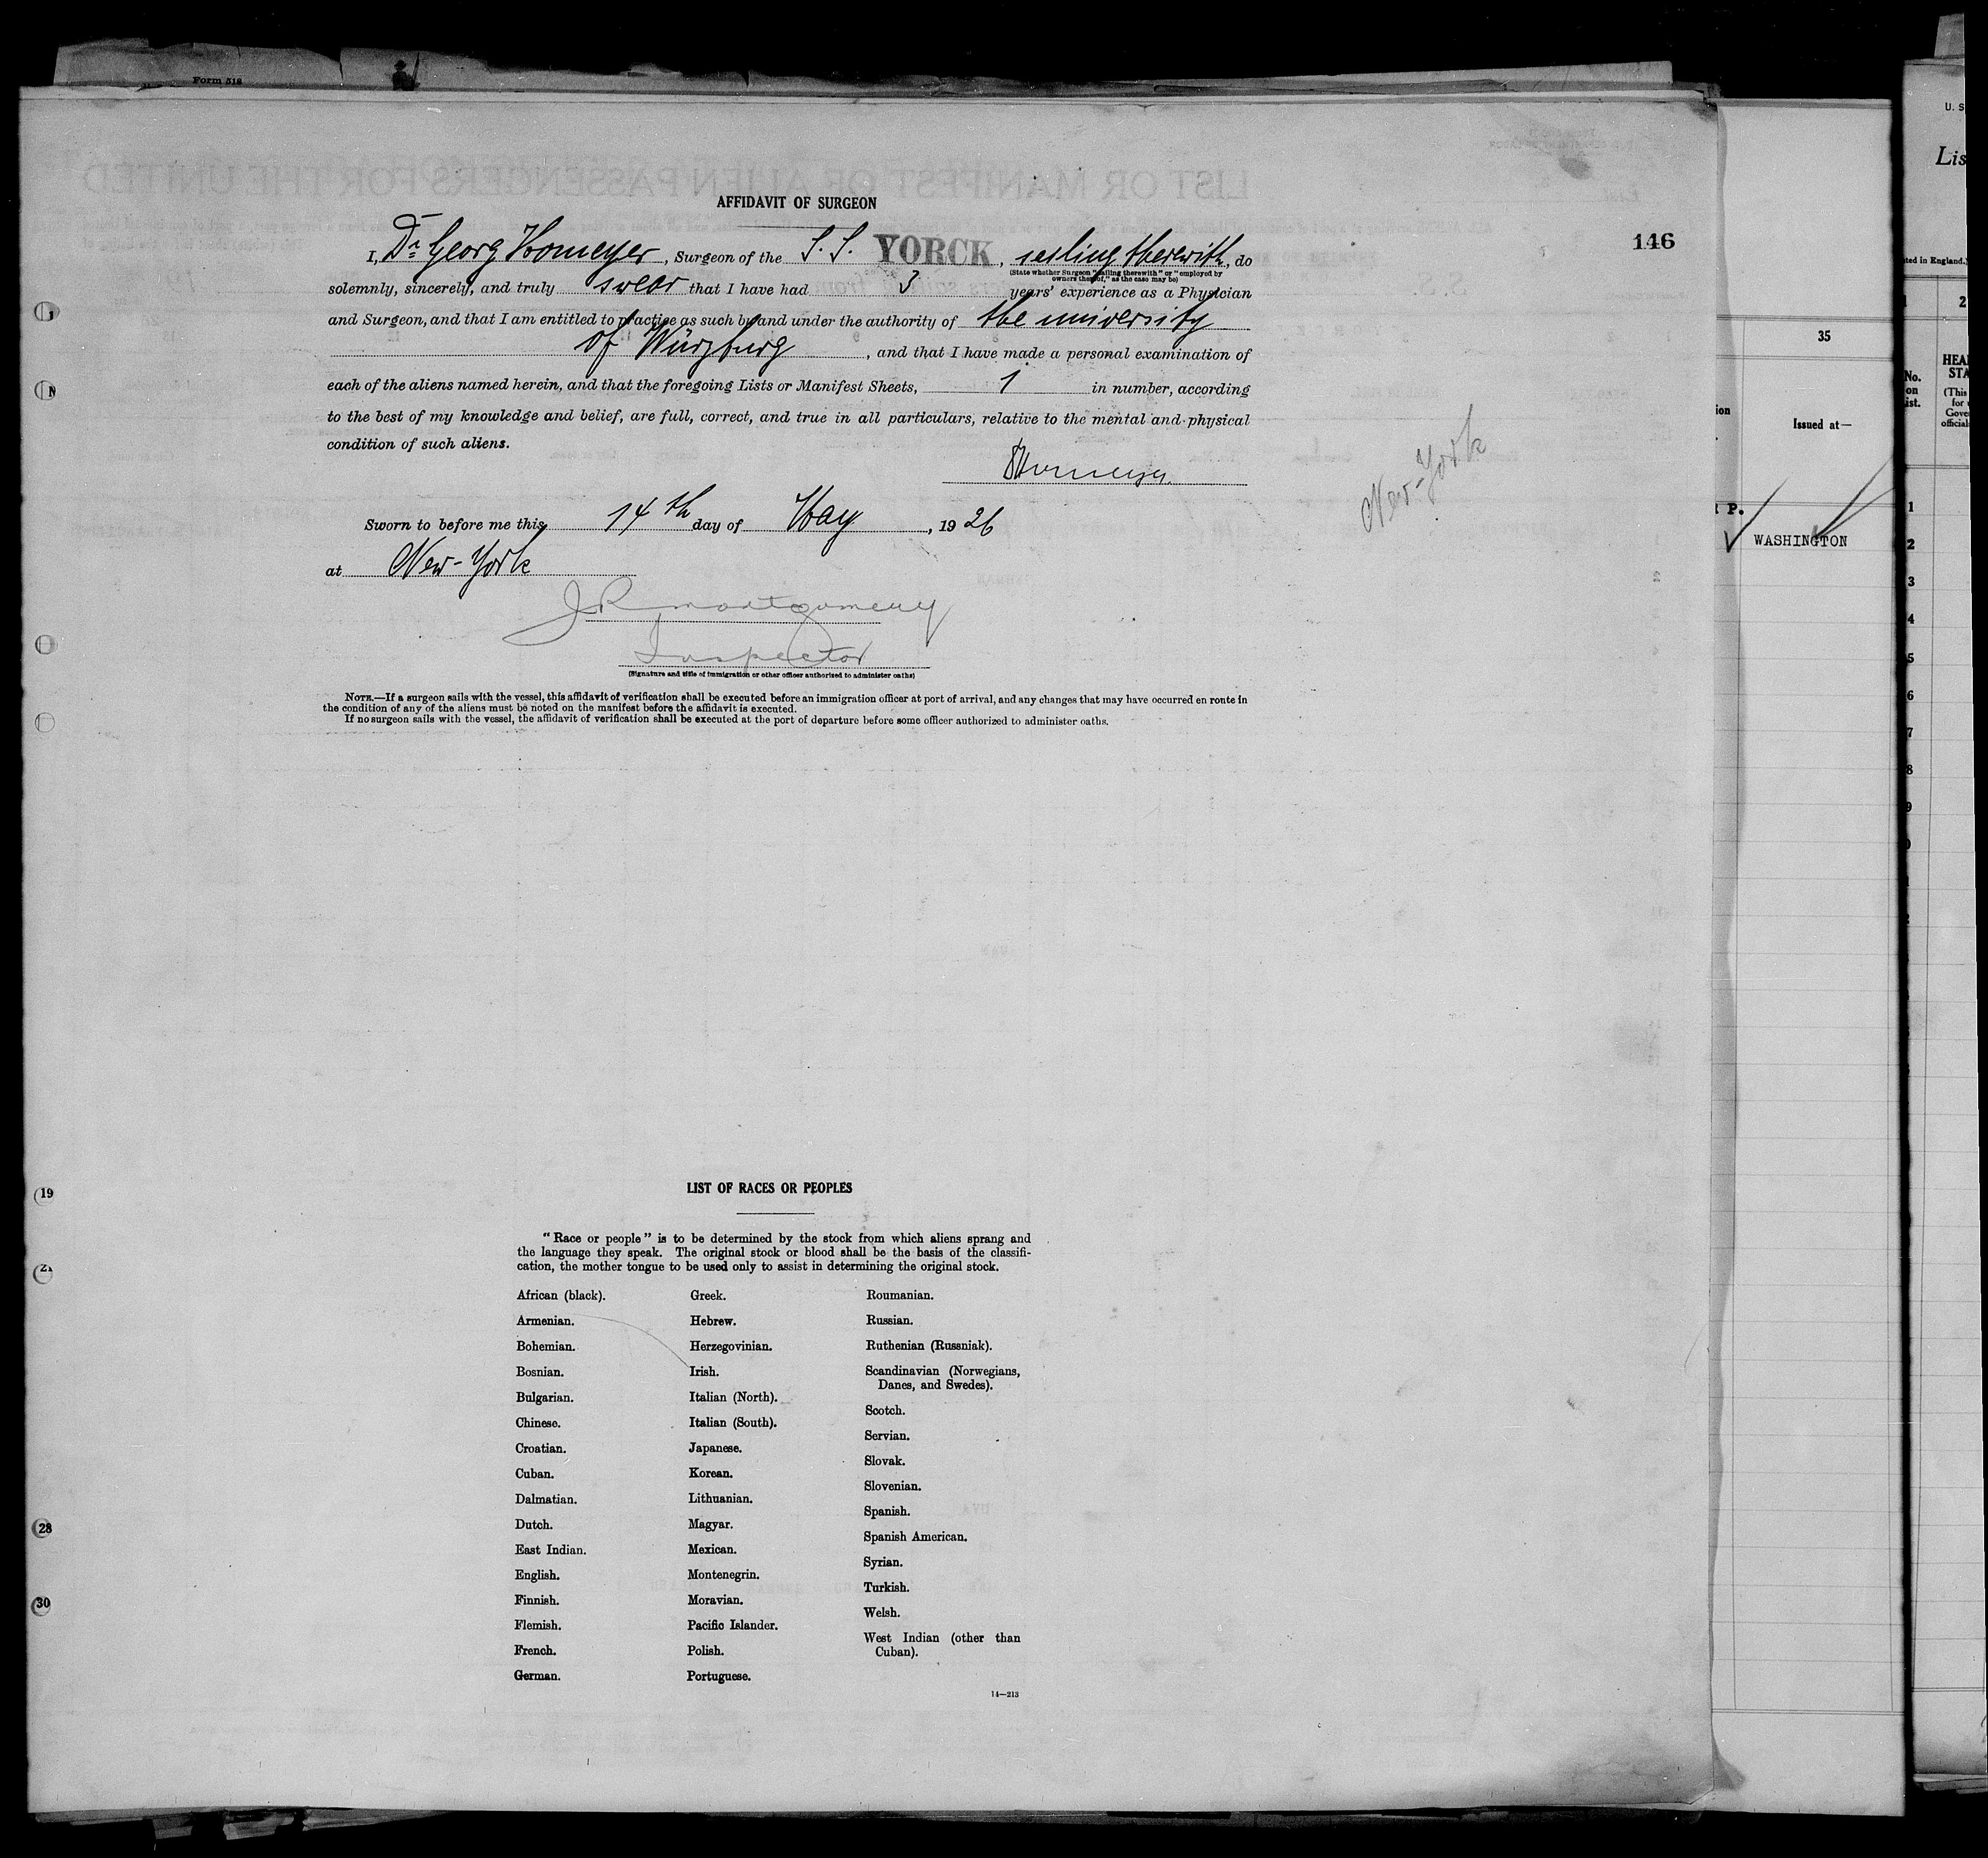 Form 518
AFFIDAVIT OF SURGEON
146
I, Dr Georg Homeyer, Surgeon of the S.S. YORCK, sailing therewith, do
(State whether Surgeon "sailing therewith" or "employed by
owners thereof," as the case may be)
solemnly, sincerely, and truly swear that I have had 3 years' experience as a Physician
and Surgeon, and that I am entitled to practice as such by and under the authority of the university
of Würzburg, and that I have made a personal examination of
each of the aliens named herein, and that the foregoing Lists or Manifest Sheets, 1 in number, according
to the best of my knowledge and belief, are full, correct, and true in all particulars, relative to the mental and physical
condition of such aliens.
Homeyer.
New-York
Sworn to before me this 14th day of May, 1926
at New-York
J R Montgomery
Inspector
(Signature and title of immigration or other officer authorized to administer oaths)
NOTE.—If a surgeon sails with the vessel, this affidavit of verification shall be executed before an immigration officer at port of arrival, and any changes that may have occurred en route in
the condition of any of the aliens must be noted on the manifest before the affidavit is executed.
If no surgeon sails with the vessel, the affidavit of verification shall be executed at the port of departure before some officer authorized to administer oaths.
LIST OF RACES OR PEOPLES
"Race or people" is to be determined by the stock from which aliens sprang and
the language they speak. The original stock or blood shall be the basis of the classifi-
cation, the mother tongue to be used only to assist in determining the original stock.
African (black).
Armenian.
Bohemian.
Bosnian.
Bulgarian.
Chinese.
Croatian.
Cuban.
Dalmatian.
Dutch.
East Indian.
English.
Finnish.
Flemish.
French.
German.
Greek.
Hebrew.
Herzegovinian.
Irish.
Italian (North).
Italian (South).
Japanese.
Korean.
Lithuanian.
Magyar.
Mexican.
Montenegrin.
Moravian.
Pacific Islander.
Polish.
Portuguese.
Roumanian.
Russian.
Ruthenian (Russniak).
Scandinavian (Norwegians,
Danes, and Swedes).
Scotch.
Servian.
Slovak.
Slovenian.
Spanish.
Spanish American.
Syrian.
Turkish.
Welsh.
West Indian (other than
Cuban).
14—213
19
21
28
30
35
Issued at—
P.
WASHINGTON
U. S
Lis
ted in England.)
2
HEA
STA
(This
for
Gove
official
No.
on
ist.
1
2
3
4
5
6
7
8
9